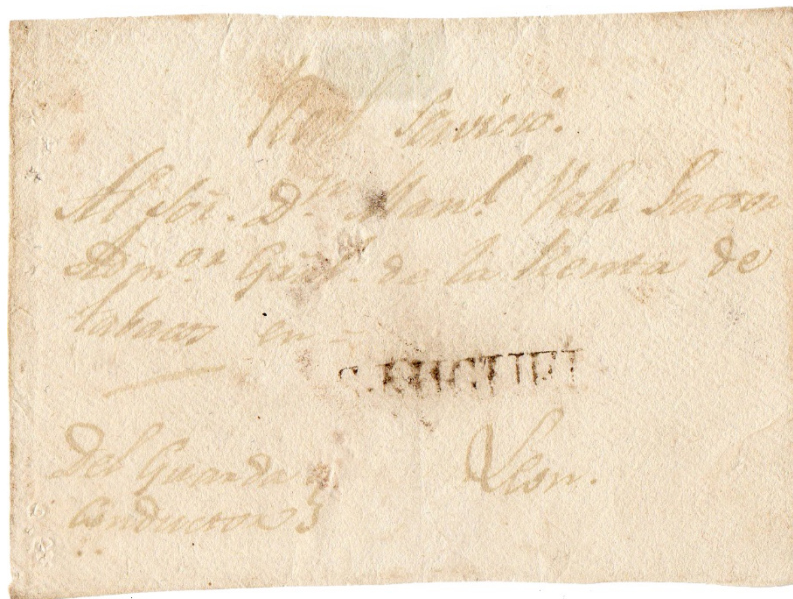 Real Servicio.
Al Sōr. Dⁿ. Manˡ. Vela
Admᵒʳ Gʳˡ. de la Renta de
tabacos en
S. MIGUEL
Del Guarda
Conductor
Leon.